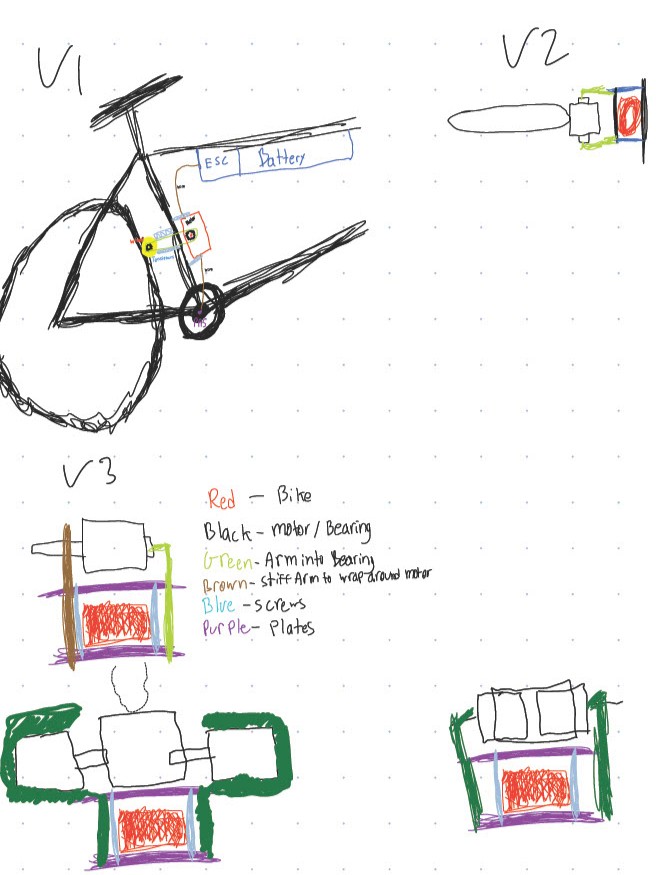 V1
V2
ESC
Battery
PAS
V3
Red - Bike
Black - motor / Bearing
Green - Arm into Bearing
Brown - stiff Arm to wrap around motor
Blue - screws
Purple - Plates